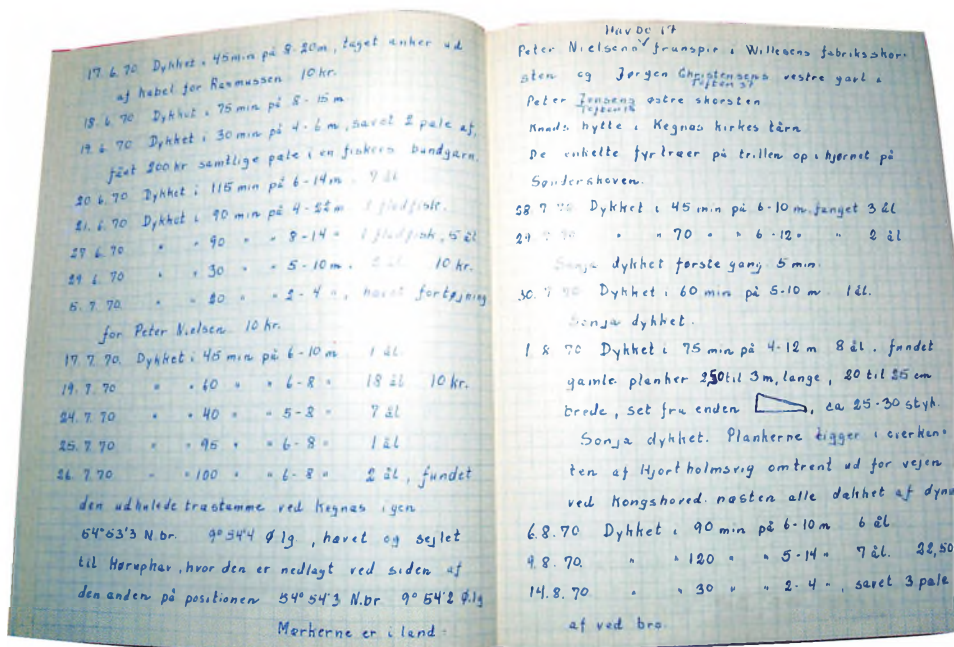 17.6.70 Dykket i 45 min på 8-20m, taget anker ud
af kabel for Rasmussen 10 kr.
18.6.70 Dykket i 75 min på 8-15 m
19.6.70 Dykket i 30 min på 4-6 m, savet 2 pæle af,
fået 200 kr samtlige pæle i en fiskers bundgarn.
20.6.70 Dykket i 115 min på 6-14 m. 7 ål
21.6.70 Dykket i 90 min på 4-22 m. 1 fladfisk.
27.6.70 " " 90 " " 8-14 " 1 fladfisk, 5 ål
29.6.70 " " 30 " " 5-10 m. 2 ål 10 kr.
5.7.70. " " 20 " " 2-4 ", hævet fortøjning
for Peter Nielsen 10 kr.
17.7.70. Dykket i 45 min på 6-10 m 1 ål.
19.7.70 " " 60 " " 6-8 " 18 ål 10 kr.
24.7.70 " " 40 " " 5-8 " 7 ål
25.7.70 " " 95 " " 6-8 " 1 ål
26.7.70 " " 100 " " 6-8 " 2 ål, fundet
den udhulede træstamme ved Kegnæs igen
54°53'3 N.br. 9°54'4 Ø.lg., hævet og sejlet
til Høruphav, hvor den er nedlagt ved siden af
den anden på positionen 54°54'3 N.br 9°54'2 Ø.lg
Mærkerne er i land.
Havbo 17
Peter Nielsens franspir i Willesens fabriksskor-
sten og Jørgen Christensens vestre gavl i
Toften 37
Peter Jensens østre skorsten
Toften 16
Knuds hytte i Kegnæs kirkes tårn
De enkelte fyrtræer på trillen op i hjørnet på
Søndershoven.
28.7.70 Dykket i 45 min på 6-10 m. fanget 3 ål
29.7.70 " " 70 " " 6-12 " " 2 ål
Sonja dykket første gang. 5 min.
30.7.70 Dykket i 60 min på 5-10 m 1 ål.
Sonja dykket.
1.8.70 Dykket i 75 min på 4-12 m 8 ål, fundet
gamle planker 2,50 til 3m, lange, 20 til 25 cm
brede, set fra enden , ca 25-30 styk.
Sonja dykket. Plankerne ligger i overkan-
ten af Hjortholmsvig omtrent ud for vejen
ved Kongshoved. næsten alle dækket af dynd
6.8.70 Dykket i 90 min på 6-10 m 6 ål
9.8.70. " " 120 " " 5-14 " 7 ål. 22,50
14.8.70 " " 30 " " 2-4 ", savet 3 pæle
af ved bro.